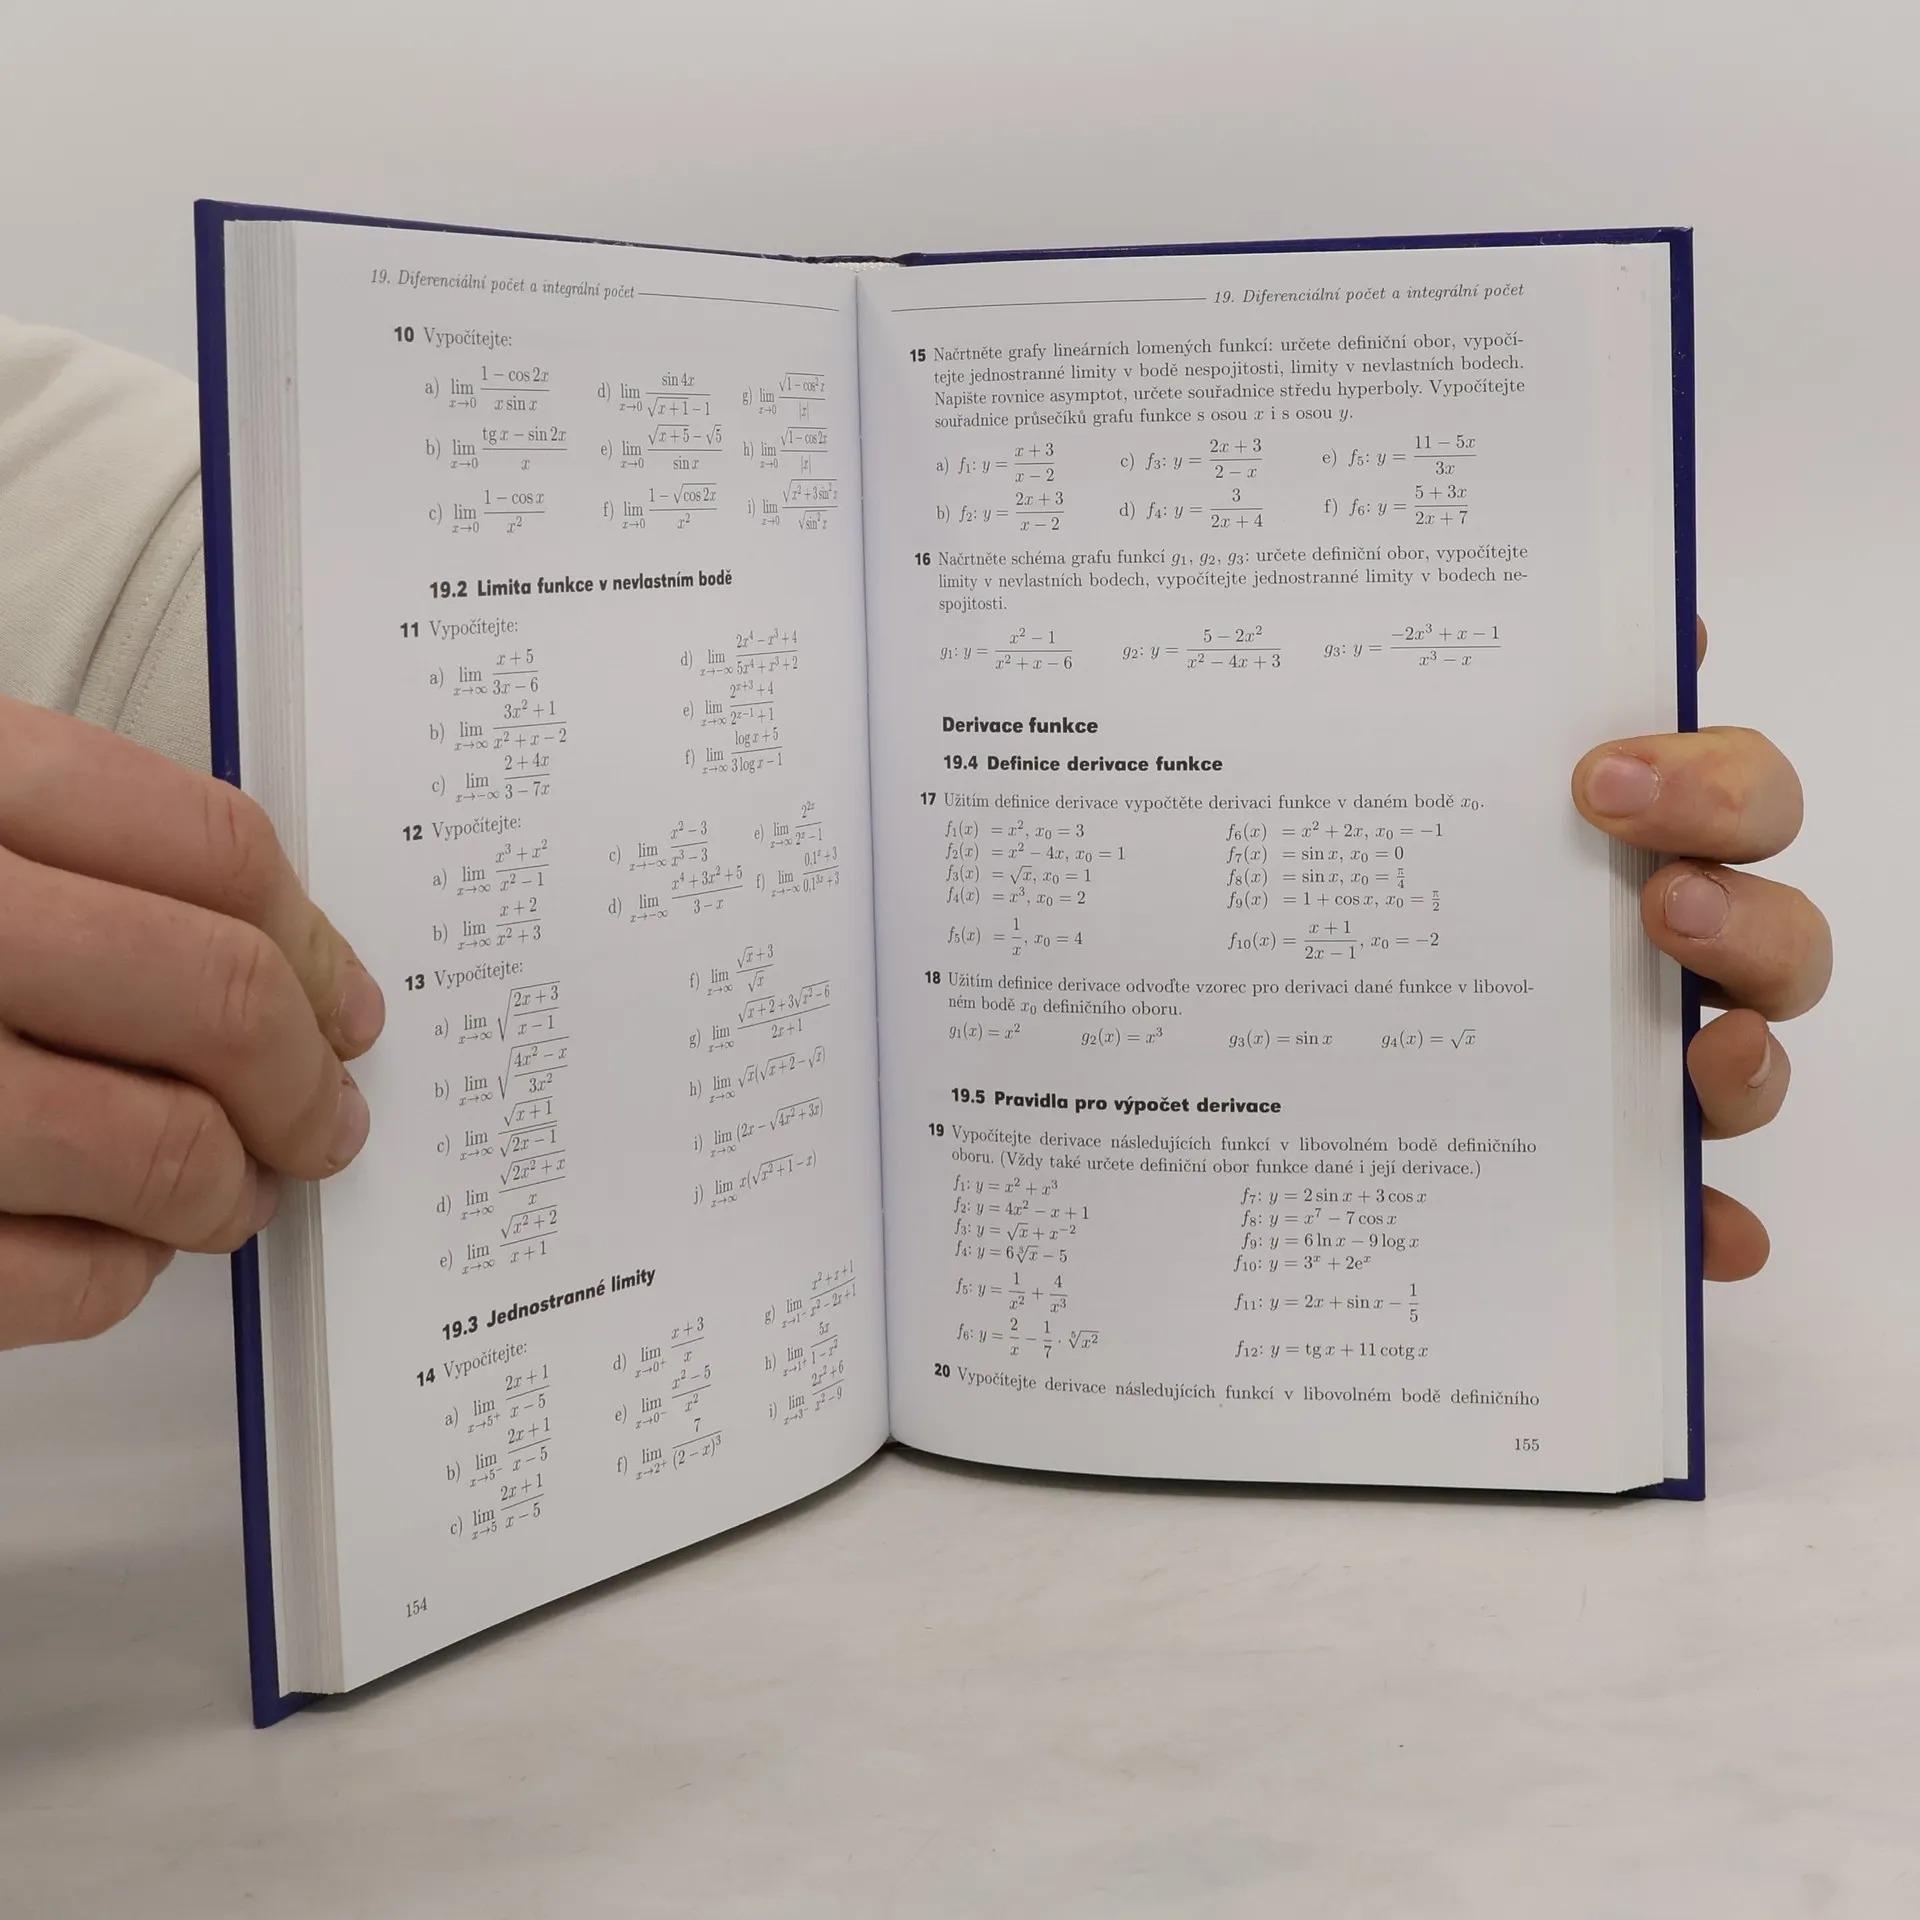 19. Diferenciální počet a integrální počet
10 Vypočítejte:
a) lim x→0 (1 − cos 2x)/(x sin x)
b) lim x→0 (tg x − sin 2x)/x
c) lim x→0 (1 − cos x)/x²
d) lim x→0 sin 4x/(√(x+1) − 1)
e) lim x→0 (√(x+5) − √5)/sin x
f) lim x→0 (1 − √(cos 2x))/x²
g) lim x→0 √(1 − cos² x)/|x|
h) lim x→0 √(1 − cos 2x)/|x|
i) lim x→0 √(x² + 3 sin² x)/√(sin² x)
19.2 Limita funkce v nevlastním bodě
11 Vypočítejte:
a) lim x→∞ (x + 5)/(3x − 6)
b) lim x→∞ (3x² + 1)/(x² + x − 2)
c) lim x→−∞ (2 + 4x)/(3 − 7x)
d) lim x→−∞ (2x⁴ − x³ + 4)/(5x⁴ + x³ + 2)
e) lim x→∞ (2^(x+3) + 4)/(2^(x−1) + 1)
f) lim x→∞ (log x + 5)/(3 log x − 1)
12 Vypočítejte:
a) lim x→∞ (x³ + x²)/(x² − 1)
b) lim x→∞ (x + 2)/(x² + 3)
c) lim x→−∞ (x² − 3)/(x³ − 3)
d) lim x→−∞ (x⁴ + 3x² + 5)/(3 − x)
e) lim x→∞ 2^(2x)/(2^x − 1)
f) lim x→−∞ (0,1^x + 3)/(0,1^(3x) + 3)
13 Vypočítejte:
a) lim x→∞ √((2x + 3)/(x − 1))
b) lim x→∞ √((4x² − x)/(3x²))
c) lim x→∞ √(x + 1)/√(2x − 1)
d) lim x→∞ √(2x² + x)/x
e) lim x→∞ √(x² + 2)/(x + 1)
f) lim x→∞ (√x + 3)/√x
g) lim x→∞ (√(x+2) + 3√(x² − 6))/(2x + 1)
h) lim x→∞ √x(√(x+2) − √x)
i) lim x→∞ (2x − √(4x² + 3x))
j) lim x→∞ x(√(x² + 1) − x)
19.3 Jednostranné limity
14 Vypočítejte:
a) lim x→5⁺ (2x + 1)/(x − 5)
b) lim x→5⁻ (2x + 1)/(x − 5)
c) lim x→5 (2x + 1)/(x − 5)
d) lim x→0⁺ (x + 3)/x
e) lim x→0⁻ (x² − 5)/x²
f) lim x→2⁺ 7/(2 − x)³
g) lim x→1⁻ (x² + x + 1)/(x² − 2x + 1)
h) lim x→1⁺ 5x/(1 − x²)
i) lim x→3⁻ (2x² + 6)/(x² − 9)
154
19. Diferenciální počet a integrální počet
15 Načrtněte grafy lineárních lomených funkcí: určete definiční obor, vypočí-
tejte jednostranné limity v bodě nespojitosti, limity v nevlastních bodech.
Napište rovnice asymptot, určete souřadnice středu hyperboly. Vypočítejte
souřadnice průsečíků grafu funkce s osou x i s osou y.
a) f₁: y = (x + 3)/(x − 2) c) f₃: y = (2x + 3)/(2 − x) e) f₅: y = (11 − 5x)/(3x)
b) f₂: y = (2x + 3)/(x − 2) d) f₄: y = 3/(2x + 4) f) f₆: y = (5 + 3x)/(2x + 7)
16 Načrtněte schéma grafu funkcí g₁, g₂, g₃: určete definiční obor, vypočítejte
limity v nevlastních bodech, vypočítejte jednostranné limity v bodech ne-
spojitosti.
g₁: y = (x² − 1)/(x² + x − 6) g₂: y = (5 − 2x²)/(x² − 4x + 3) g₃: y = (−2x³ + x − 1)/(x³ − x)
Derivace funkce
19.4 Definice derivace funkce
17 Užitím definice derivace vypočtěte derivaci funkce v daném bodě x₀.
f₁(x) = x², x₀ = 3 f₆(x) = x² + 2x, x₀ = −1
f₂(x) = x² − 4x, x₀ = 1 f₇(x) = sin x, x₀ = 0
f₃(x) = √x, x₀ = 1 f₈(x) = sin x, x₀ = π/4
f₄(x) = x³, x₀ = 2 f₉(x) = 1 + cos x, x₀ = π/2
f₅(x) = 1/x, x₀ = 4 f₁₀(x) = (x + 1)/(2x − 1), x₀ = −2
18 Užitím definice derivace odvoďte vzorec pro derivaci dané funkce v libovol-
ném bodě x₀ definičního oboru.
g₁(x) = x² g₂(x) = x³ g₃(x) = sin x g₄(x) = √x
19.5 Pravidla pro výpočet derivace
19 Vypočítejte derivace následujících funkcí v libovolném bodě definičního
oboru. (Vždy také určete definiční obor funkce dané i její derivace.)
f₁: y = x² + x³ f₇: y = 2 sin x + 3 cos x
f₂: y = 4x² − x + 1 f₈: y = x⁷ − 7 cos x
f₃: y = √x + x⁻² f₉: y = 6 ln x − 9 log x
f₄: y = 6∛x − 5 f₁₀: y = 3ˣ + 2eˣ
f₅: y = 1/x² + 4/x³ f₁₁: y = 2x + sin x − 1/5
f₆: y = 2/x − 1/7 · ⁵√(x²) f₁₂: y = tg x + 11 cotg x
20 Vypočítejte derivace následujících funkcí v libovolném bodě definičního
155